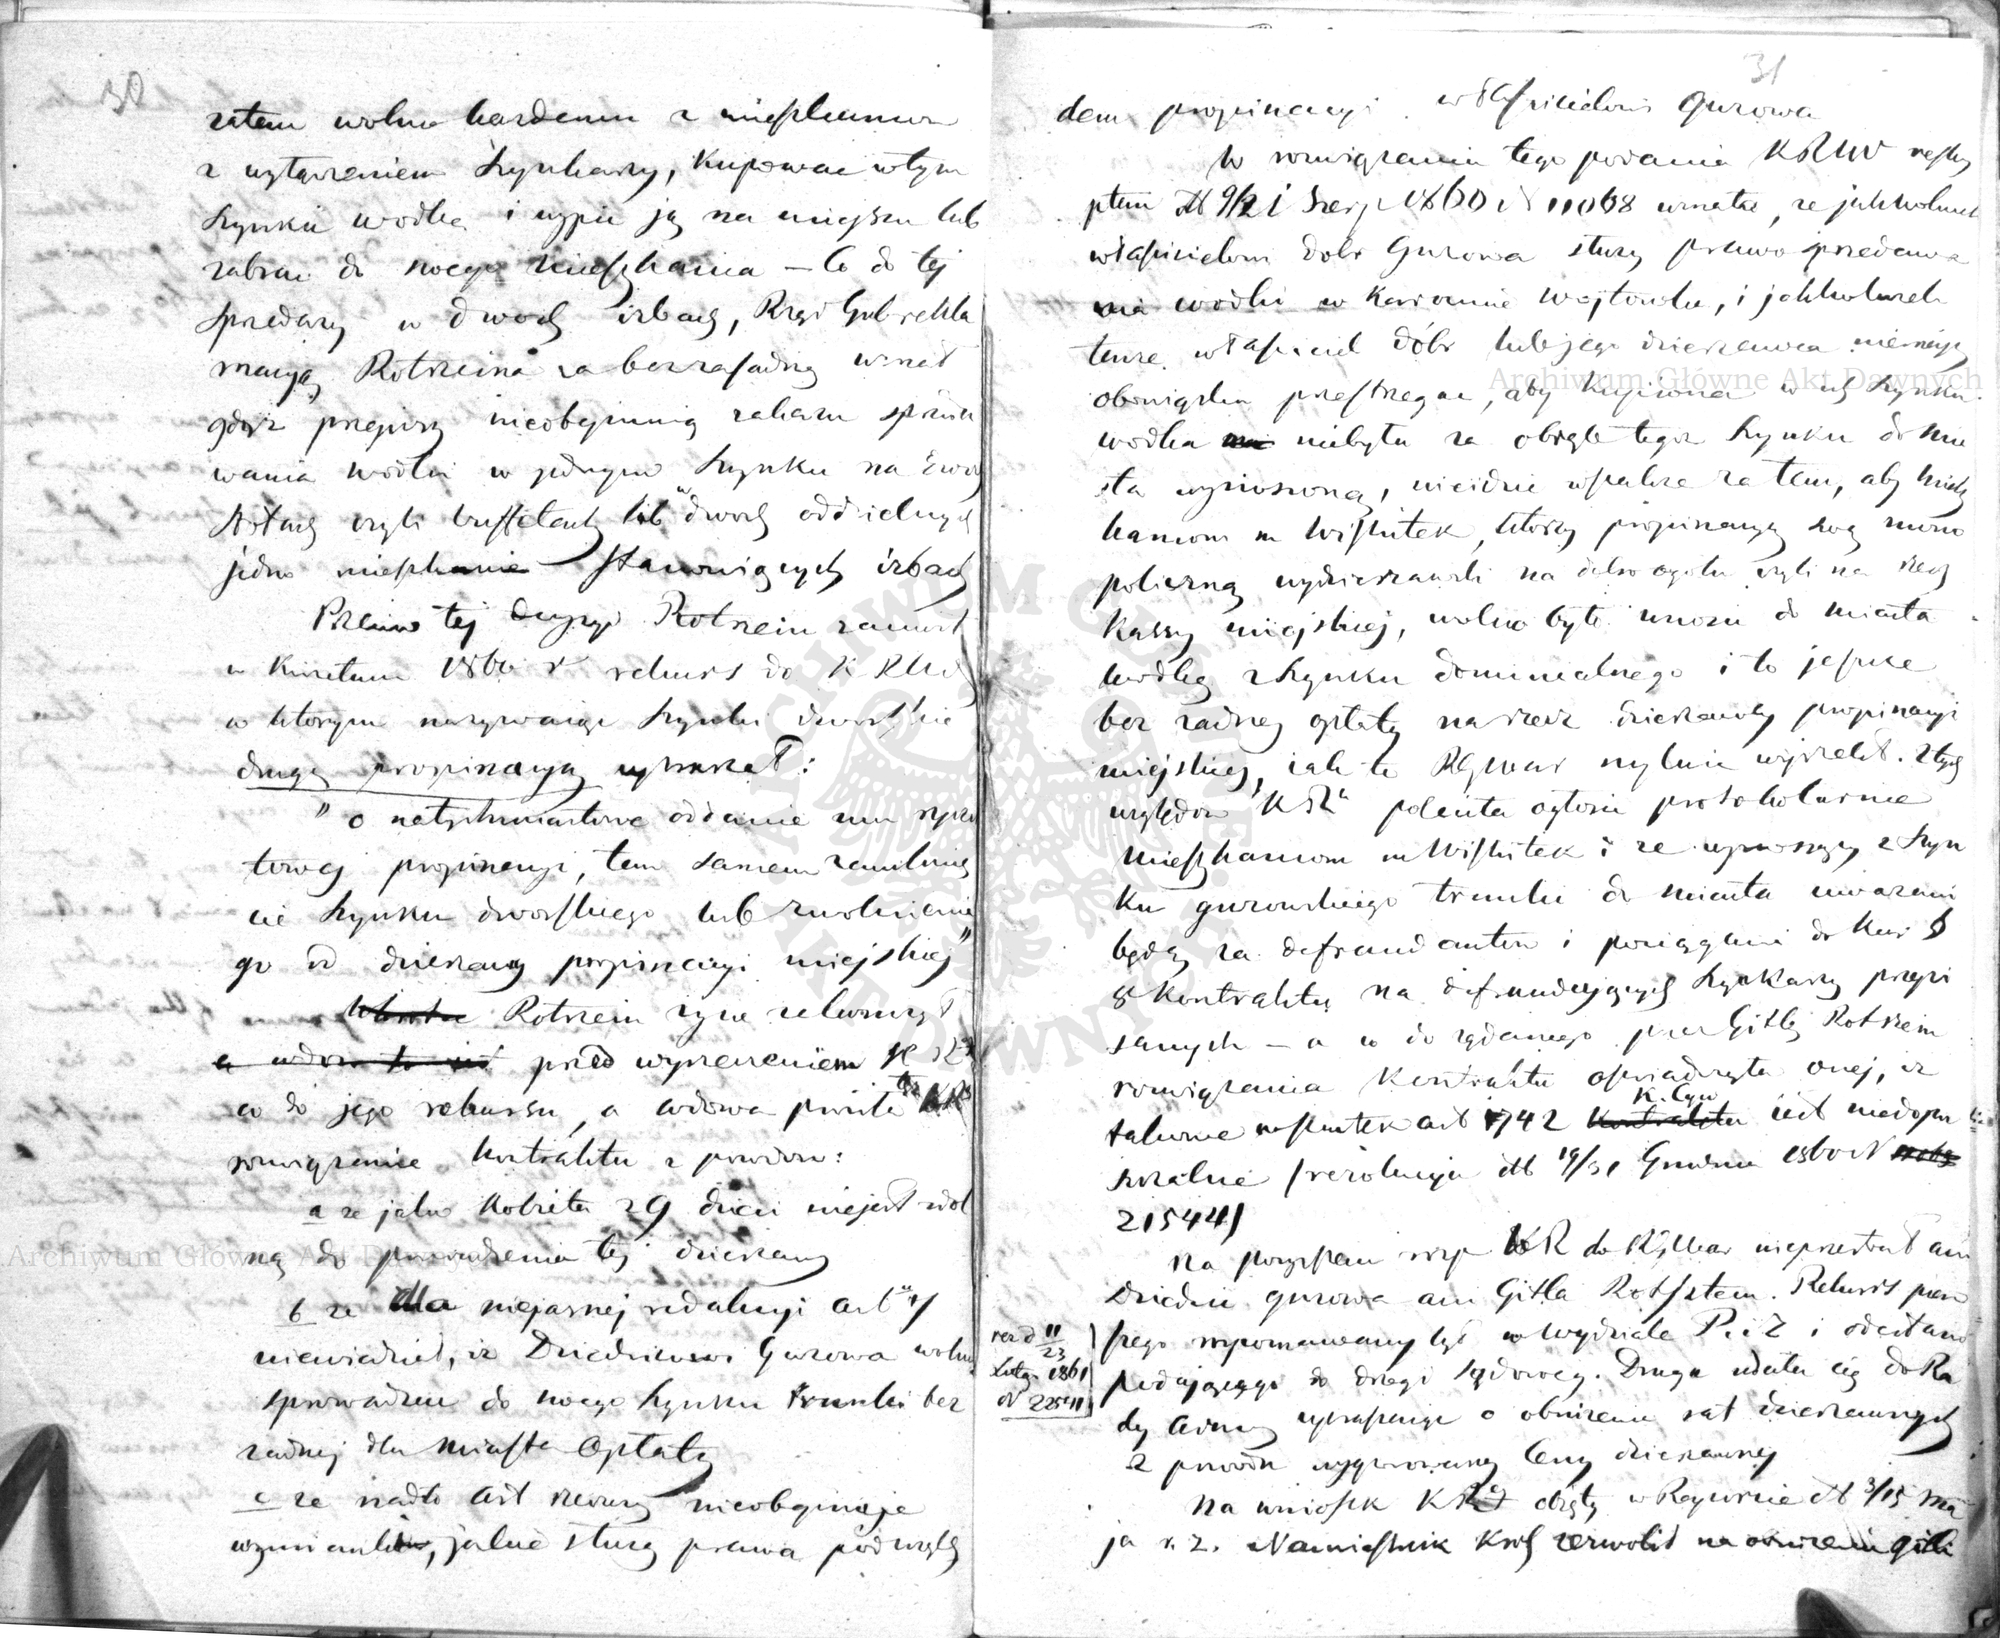 30
zatem wolno każdemu z mieszkańców
z wyłączeniem Szynkarzy, kupować w tym
szynku wódkę i wypić ją na miejscu lub
zabrać do swego mieszkania – Co do tej
sprzedaży w dwóch izbach, Rząd Gub rekla
macyą Rotszeina za bezzasadną uznał
gdyż przepisy nieobejmują zakazu sprzeda
wania wódki w jednym szynku na dwóch
stołach czyli bufetach lub w dwóch oddzielnych
jedno mieszkanie stanowiących izbach
Przeciw tej decyzyi Rotszein zaniósł
w Kwietniu 1860 r rekurs do K R
w którym nazywając szynk dworski
drugą propinacyą upraszał:
„o natychmiastowe oddanie mu
towej propinacyi, tem samem zamknię
cie szynku dworskiego lub zwolnienie
go od dzierżawy propinacyi miejskiej”
Rotszein życie zakończył
przed wyrzeczeniem K R
co do jego rekursu, a wdowa prosiła
rozwiązanie kontraktu z powodu:
a że jako kobieta z 9 dzieci niejest zdol
ną do prowadzenia tej dzierżawy
b że dla niejasnej redakcyi art
niewiedział, iż Dziedzicowi Guzowa wolno
sprowadzać do swego szynku trunki bez
żadnej dla miasta opłaty
c że nadto art rzeczony nieobejmuje
wzmianki, jakie służą prawa pod wzglę
31
dem propinacyi właścicielowi Guzowa
W rozwiązaniu tego podania KR reskry
ptem dd 9/21 Sierp 1860 N 11068 uznała, że jakkolwiek
właścicielom dóbr Guzowa służy prawo sprzedawa
nia wódki w Karczmie Wojtówka, i jakkolwiek
tenże właściciel dóbr lub jego dzierżawca niemają
obowiązku przestrzegać, aby kupiona w ich szynku
wódka niebyła za obręb tegoż szynku do mia
sta wynoszoną, nieidzie wszakże za tem, aby miesz
kańcom m Wiskitek, którzy propinacyą swą mono
policzną wydzierżawili na dobro ogółu czyli na rzecz
Kassy miejskiej, wolno było wnosić do miasta
wódkę z szynku dominialnego i to jeszcze
bez żadnej opłaty na rzecz dzierżawcy propinacyi
miejskiej, jak to RGWar mylnie wyrzekł. Z tych
względów KR poleciła ogłosić protokolarnie
mieszkańcom m Wiskitek iż że wynoszący z szyn
ku guzowskiego trunki do miasta uważani
będą za defraudantów i pociągani do kar §
8 kontraktu na defraudujących szynkarzy przepi
sanych – a co do żądanego przez Gitlę Rotszein
rozwiązania kontraktu oświadczyła onej, iż
K. Cyw
takowe na skutek art 1742 jest niedopu
szczalne (rezolucyja dd 19/31 Grudnia 1860 N
21544)
Na powyższem rozp KR do RGWar nieprzestał ani
Dziedzic guzowa ani Gitla Rotsztein. Rekurs pier
wszego rozpoznawany był w Wydziale P. i Z i odesłano
podającego do drogi sądowej. Druga udała się do Ra
dy Admn upraszając o obniżenie rat dzierżawnych
z powodu wygórowanej Ceny dzierżawnej
rez d 11/23
Lutego 1861
N 22541
Na wniosek KR objęty w Raporcie dd 3/15 Ma
ja r. z. Namiestnik Król zezwolił na obniżenie Gitli
Archiwum Główne Akt Dawnych
Archiwum Główne Akt Dawnych
ARCHIWUM GŁÓWNE AKT DAWNYCH